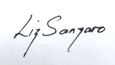 Liz Sangaro